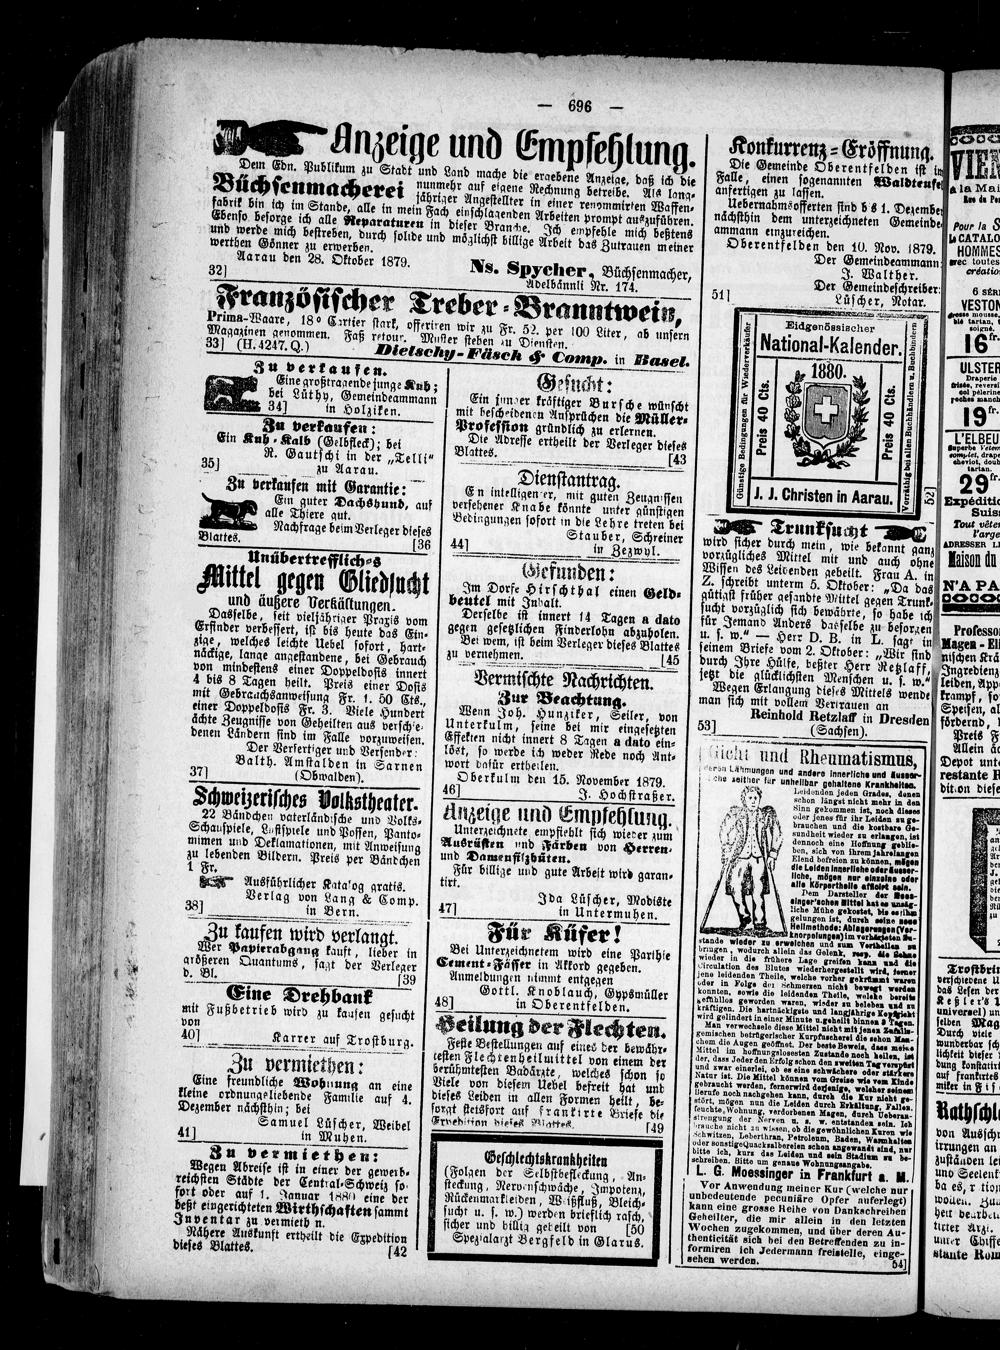 — 696 —
Anzeige und Empfehlung.
Dem Edn. Publikum zu Stadt und Land mache die ergebene Anzeige, daß ich die
Büchsenmacherei nunmehr auf eigene Rechnung betreibe. Als lang-
jähriger Angestellter in einer renommirten Waffen-
fabrik bin ich im Stande, alle in mein Fach einschlagenden Arbeiten prompt auszuführen.
Ebenso besorge ich alle Reparaturen in dieser Branche. Ich empfehle mich bestens
und werde mich bestreben, durch solide und möglichst billige Arbeit das Zutrauen meiner
werthen Gönner zu erwerben.
Aarau den 28. Oktober 1879.
Ns. Spycher, Büchsenmacher,
32] Adelbändli Nr. 174.
Französischer Treber-Branntwein,
Prima-Waare, 18° Cartier stark, offeriren wir zu Fr. 52. per 100 Liter, ab unsern
Magazinen genommen. Faß retour. Muster stehen zu Diensten.
33] (H. 4247. Q.) Dietschy-Fäsch & Comp. in Basel.
Zu verkaufen.
Eine großtragende junge Kuh;
bei Lüthy, Gemeindeammann
34] in Holziken.
Zu verkaufen:
Ein Kuh-Kalb (Gelbfleck); bei
R. Gautschi in der „Telli“
35] zu Aarau.
Zu verkaufen mit Garantie:
Ein guter Dachshund, auf
alle Thiere gut.
Nachfrage beim Verleger dieses
Blattes. [36
Unübertreffliches
Mittel gegen Gliedsucht
und äußere Verkältungen.
Dasselbe, seit vieljähriger Praxis vom
Erfinder verbessert, ist bis heute das Ein-
zige, welches leichte Uebel sofort, hart-
näckige, lange angestandene, bei Gebrauch
von mindestens einer Doppeldosis innert
4 bis 8 Tagen heilt. Preis einer Dosis
mit Gebrauchsanweisung Fr. 1. 50 Cts.,
einer Doppeldosis Fr. 3. Viele Hundert
ächte Zeugnisse von Geheilten aus verschie-
denen Ländern sind im Falle vorzuweisen.
Der Verfertiger und Versender:
Balth. Amstalden in Sarnen
37] (Obwalden).
Schweizerisches Volkstheater.
22 Bändchen vaterländische und Volks-
Schauspiele, Lustspiele und Possen, Panto-
mimen und Deklamationen, mit Anweisung
zu lebenden Bildern. Preis per Bändchen
1 Fr.
Ausführlicher Katalog gratis.
Verlag von Lang & Comp.
38] in Bern.
Zu kaufen wird verlangt.
Wer Papierabgang kauft, lieber in
größeren Quantums, sagt der Verleger
d. Bl. [39
Eine Drehbank
mit Fußbetrieb wird zu kaufen gesucht
von
40] Karrer auf Trostburg.
Zu vermiethen:
Eine freundliche Wohnung an eine
kleine ordnungsliebende Familie auf 4.
Dezember nächsthin; bei
Samuel Lüscher, Weibel
41] in Muhen.
Zu vermiethen:
Wegen Abreise ist in einer der gewerb-
reichsten Städte der Central-Schweiz so-
fort oder auf 1. Januar 1880 eine der
best eingerichteten Wirthschaften sammt
Inventar zu vermiethen.
Nähere Auskunft ertheilt die Expedition
dieses Blattes. [42
Gesucht:
Ein junger kräftiger Bursche wünscht
mit bescheidenen Ansprüchen die Müller-
Profession gründlich zu erlernen.
Die Adresse ertheilt der Verleger dieses
Blattes. [43
Dienstantrag.
Ein intelligenter, mit guten Zeugnissen
versehener Knabe könnte unter günstigen
Bedingungen sofort in die Lehre treten bei
Stauber, Schreiner
44] in Zezwyl.
Gefunden:
Im Dorfe Hirschthal einen Geld-
beutel mit Inhalt.
Derselbe ist innert 14 Tagen a dato
gegen gesetzlichen Finderlohn abzuholen.
Bei wem, ist beim Verleger dieses Blattes
zu vernehmen. [45
Vermischte Nachrichten.
Zur Beachtung.
Wenn Joh. Hunziker, Seiler, von
Unterkulm, seine bei mir eingesetzten
Effekten nicht innert 8 Tagen a dato ein-
löst, so werde ich weder Rede noch Ant-
wort dafür ertheilen.
Oberkulm den 15. November 1879.
46] J. Hochstraßer.
Anzeige und Empfehlung.
Unterzeichnete empfiehlt sich wieder zum
Ausrüsten und Färben von Herren-
und Damenfilzhüten.
Für billige und gute Arbeit wird garan-
tirt.
Ida Lüscher, Modiste
47] in Untermuhen.
Für Küfer!
Bei Unterzeichnetem wird eine Parthie
Cement-Fässer in Akkord gegeben.
Anmeldungen nimmt entgegen
Gottl. Knoblauch, Gypsmüller
48] in Oberentfelden.
Heilung der Flechten.
Feste Bestellungen auf eines der bewähr-
testen Flechtenheilmittel von einem der
berühmtesten Badärzte, welches schon so
Viele von diesem Uebel befreit hat und
dieses Leiden in allen Formen heilt, be-
sorgt stetsfort auf frankirte Briefe die
Expedition dieses Blattes. [49
Geschlechtskrankheiten
(Folgen der Selbstbefleckung, An-
steckung, Nervenschwäche, Impotenz,
Rückenmarkleiden, Weißfluß, Bleich-
sucht u. s. w.) werden brieflich rasch,
sicher und billig geheilt von [50
Spezialarzt Bergfeld in Glarus.
Konkurrenz-Eröffnung.
Die Gemeinde Oberentfelden ist im
Falle, einen sogenannten Waldteufel
anfertigen zu lassen.
Uebernahmsofferten sind bis 1. Dezember
nächsthin dem unterzeichneten Gemeinde-
ammann einzureichen.
Oberentfelden den 10. Nov. 1879.
Der Gemeindeammann:
J. Walther.
Der Gemeindeschreiber:
51] Lüscher, Notar.
Eidgenössischer
National-Kalender.
1880.
Preis 40 Cts.
Preis 40 Cts.
Günstige Bedingungen für Wiederverkäufer
Vorräthig bei allen Buchhändlern u. Buchbindern
J. J. Christen in Aarau.
52]
Trunksucht
wird sicher durch mein, wie bekannt ganz
vorzügliches Mittel mit und auch ohne
Wissen des Leidenden geheilt. Frau A. in
Z. schreibt unterm 5. Oktober: „Da das
gütigst früher gesandte Mittel gegen Trunk-
sucht vorzüglich sich bewährte, so habe ich
für Jemand Anders dasselbe zu besorgen
u. s. w.“ — Herr D. B. in L. sagt in
seinem Briefe vom 2. Oktober: „Wir sind
durch Ihre Hülfe, bester Herr Retzlaff,
jetzt die glücklichsten Menschen u. s. w.“
Wegen Erlangung dieses Mittels wende
man sich mit vollem Vertrauen an
Reinhold Retzlaff in Dresden
53] (Sachsen).
Gicht und Rheumatismus,
deren Lähmungen und andere innerliche und äusser-
liche seither für unheilbar gehaltene Krankheiten.
Leidenden jeden Grades, denen
schon längst nicht mehr in den
Sinn gekommen ist, noch dieses
oder jenes für ihr Leiden zu ge-
brauchen und die kostbare Ge-
sundheit wieder zu erlangen, ist
dennoch eine Hoffnung geblie-
ben, sich von ihrem jahrelangen
Elend befreien zu können, mögen
die Leiden innerliche oder äusser-
liche, mögen nur einzelne oder
alle Körpertheile afficirt sein.
Dem Darsteller der Moes-
singer'schen Mittel hat es unsäg-
liche Mühe gekostet, bis es ihm
gelungen ist, durch seine neue
Heilmethode: Ablagerungen (Ver-
knorpelungen) im verhärteten Zu-
stande wieder zu erweichen und zum Vertheilen zu
bringen, wodurch allein das Gelenk, resp. die Sehne
wieder in die frühere Lage greifen kann und die
Circulation des Blutes wiederhergestellt wird, ferner
jene leidenden Theile, welche vorher gekrümmt waren
oder in Folge der Schmerzen nicht bewegt werden
konnten, sowie die leidenden Theile, welche bereits
gefühllos geworden waren, wieder zu beleben und zu
kräftigen. Die hartnäckigste und langjährige Kopfgicht
wird gelindert in einer Minute u. geheilt binnen 8 Tagen.
Man verwechsele diese Mittel nicht mit jenen Zufalls-
gemischen betrügerischer Kurpfuscherei die schon Man-
chem die Augen geöffnet. Der beste Beweis, dass meine
Mittel im hoffnungslosesten Zustande noch heilen, ist
der, dass Jeder den Erfolg schon den zweiten Tag verspürt
und zwar einerlei, ob es eine schwächere oder stärkere
Natur ist. Die Mittel können vom Greise wie vom Kinde
gebraucht werden, ferner wird derjenige, welcher seinem
Berufe noch nachgehen kann, durch die Kur nicht ge-
stört, mögen nun die Leiden durch Erkältung, Fallen,
feuchte Wohnung, verdorbenen Magen, durch Ueberan-
strengung der Nerven u. s. w. entstanden sein. Ich
brauche nicht zu wissen, ob die gewöhnlichen Kuren wie
Schwitzen, Leberthran, Petroleum, Baden, Warmhalten
oder sonstige Quacksalbereien schon angewandt sind, nur
bitte ich, kurz das Leiden und sein Stadium zu be-
schreiben. Bitte um genaue Wohnungsangabe.
L. G. Moessinger in Frankfurt a. M.
Vor Anwendung meiner Kur (welche nur
unbedeutende pecuniäre Opfer auferlegt)
kann eine grosse Reihe von Dankschreiben
Geheilter, die mir allein in den letzten
Wochen zugekommen, und über deren Au-
thenticität sich bei den Betreffenden zu in-
formiren ich Jedermann freistelle, einge-
sehen werden. 54]
VIEN
à la Mai
Rue du Po
Pour la S
CATALO
HOMMES
avec toutes
création
6 SÉR
VESTON
16 fr.
ULSTER
Draperie
19 fr.
L'ELBEU
29 fr.
Expéditio
Suis
Tout vête
l'arge
ADRESSER L
Maison du
N'A PA
Professo
Magen-El
Ingredienz
Preis F
Allein ä
Depot unt
restante R
Rathschl